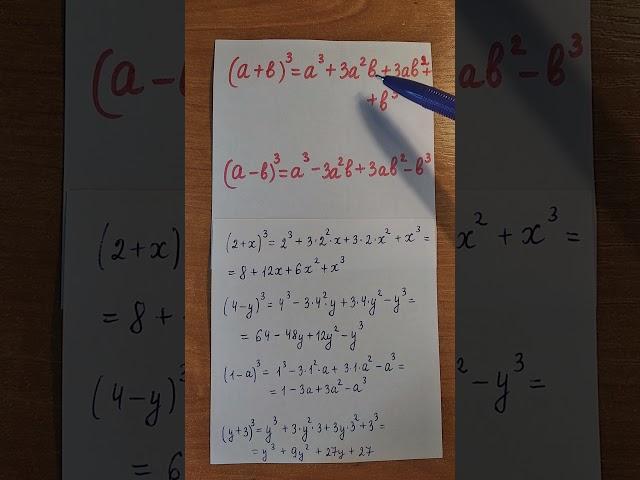 (a+b)³ = a³ + 3a²b + 3ab² +
+ b³
(a-b)³ = a³ - 3a²b + 3ab² - b³
(2+x)³ = 2³ + 3·2²·x + 3·2·x² + x³ =
= 8 + 12x + 6x² + x³
(4-y)³ = 4³ - 3·4²·y + 3·4·y² - y³ =
= 64 - 48y + 12y² - y³
(1-a)³ = 1³ - 3·1²·a + 3·1·a² - a³ =
= 1 - 3a + 3a² - a³
(y+3)³ = y³ + 3·y²·3 + 3y·3² + 3³ =
= y³ + 9y² + 27y + 27